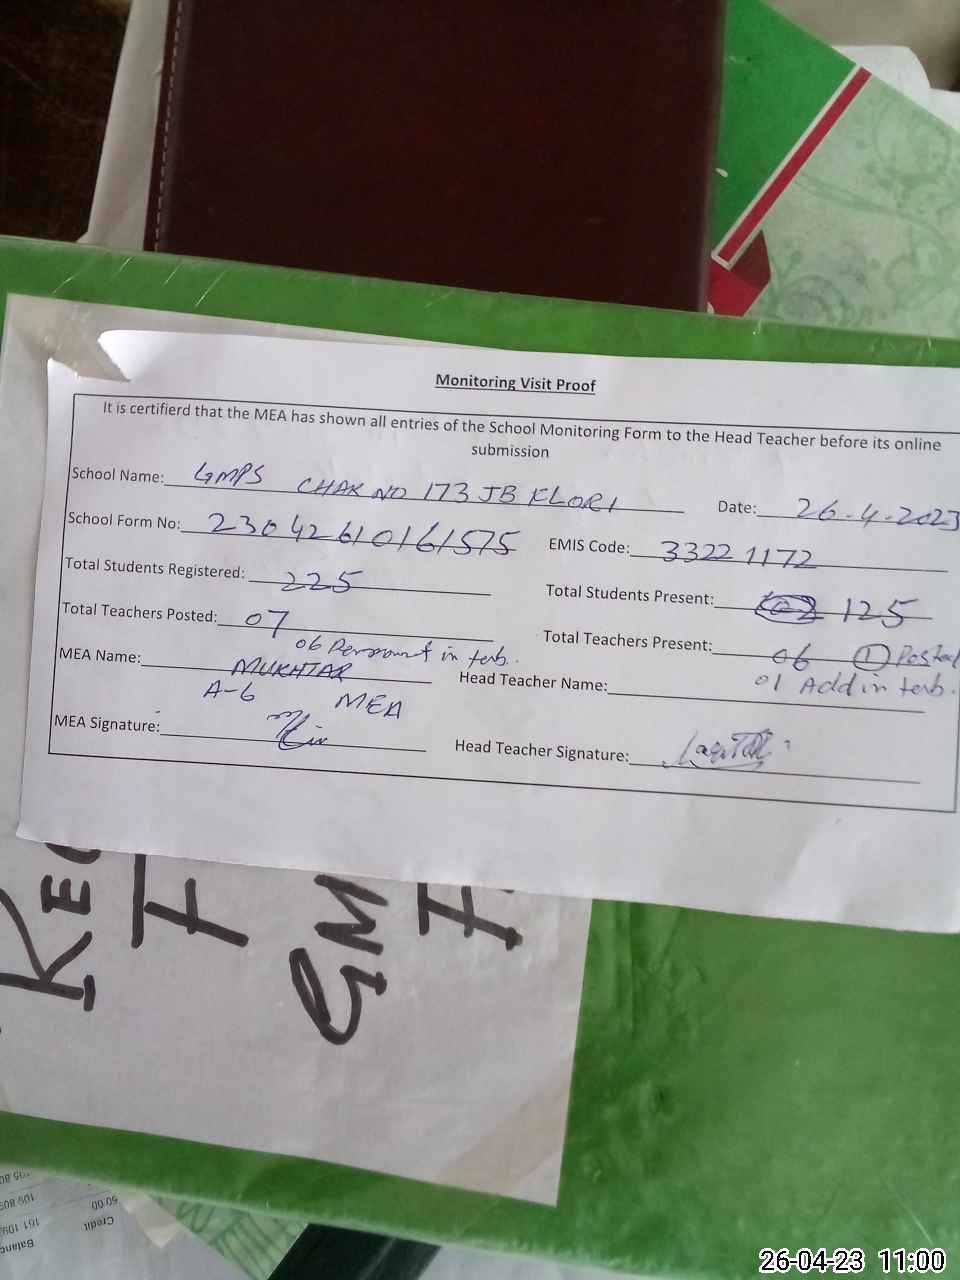 Monitoring Visit Proof
It is certifierd that the MEA has shown all entries of the School Monitoring Form to the Head Teacher before its online
submission
School Name: GMPS CHAK NO 173 JB KLORI Date: 26-4-2023
School Form No: 23042610161575 EMIS Code: 33221172
Total Students Registered: 225 Total Students Present: 125
Total Teachers Posted: 07 Total Teachers Present: 06 1 Posted
06 in tab. 01 Add in tab.
MEA Name: MUKHTAR Head Teacher Name:
A-6 MEA
MEA Signature: Head Teacher Signature:
GM
50.00
Credit
Balanc
26-04-23 11:00